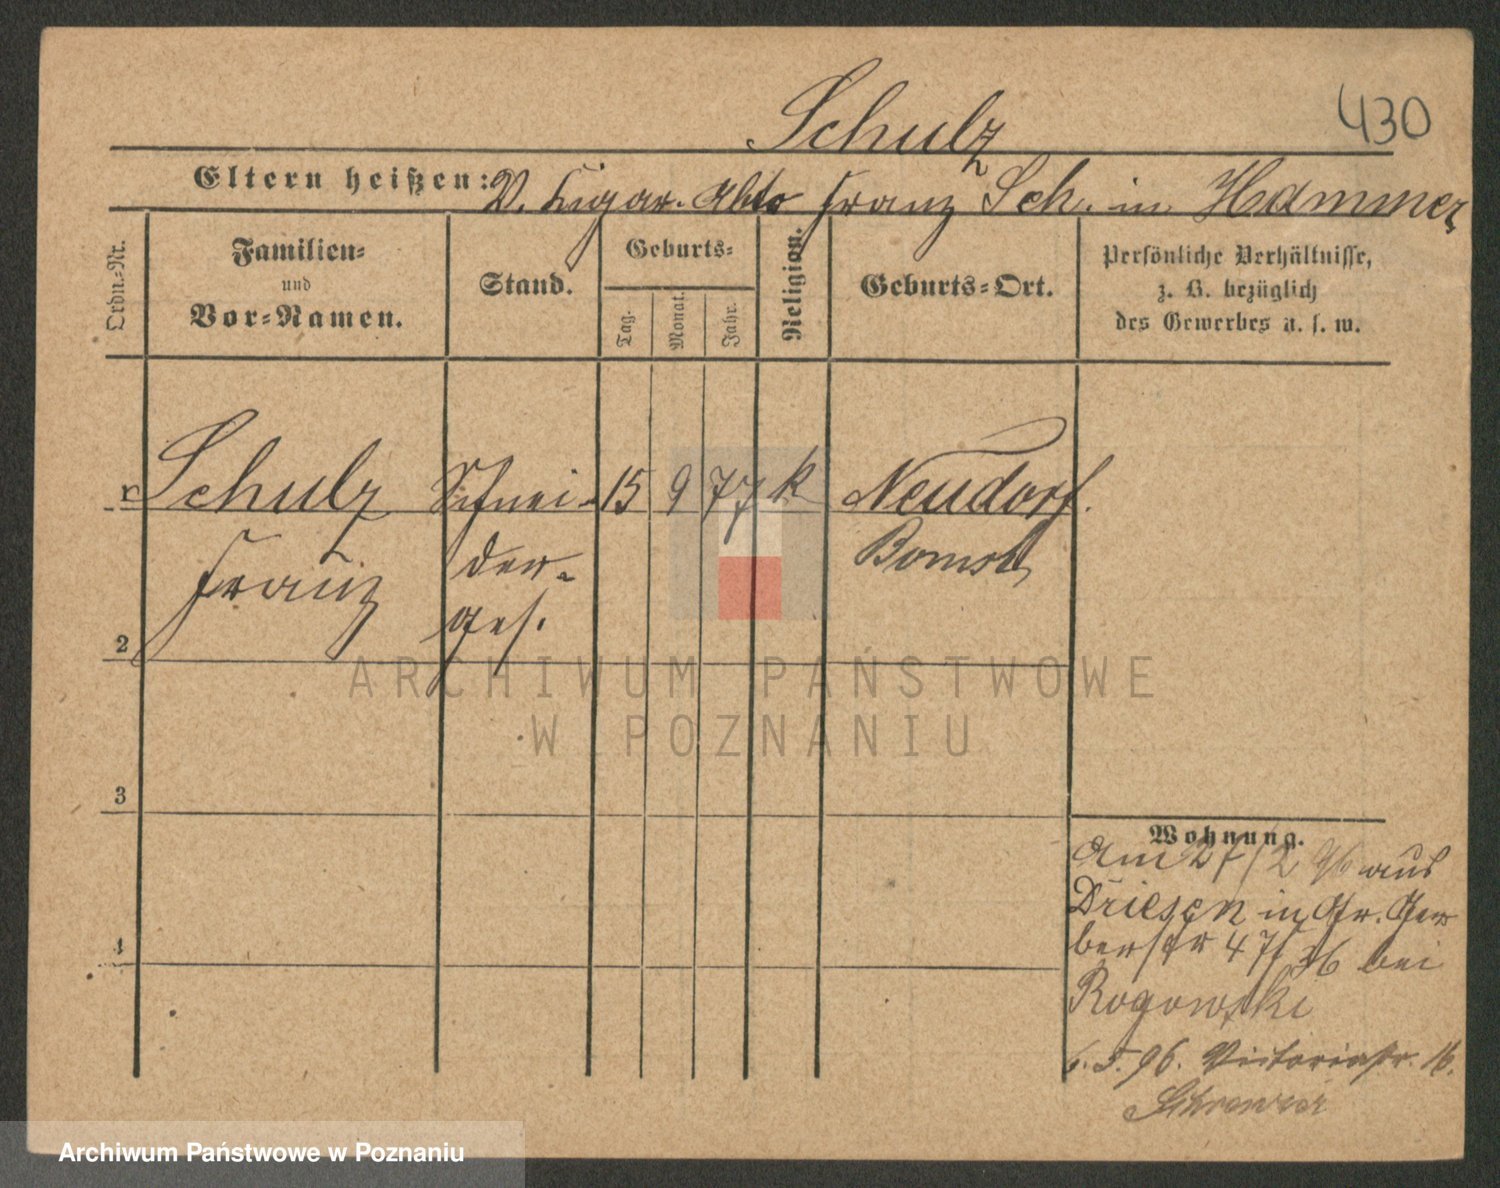 430
Schulz
Eltern heißen: V. Eigar. Abto Franz Sch. in Hammer
Ordn.-Nr.
Familien-
und
Vor-Namen.
Stand.
Geburts-
Tag.
Monat.
Jahr.
Religion.
Geburts-Ort.
Persönliche Verhältnisse,
z. B. bezüglich
des Gewerbes u. s. w.
Schulz Schnei- 15 9 77 k Neudorf.
Franz der- Bomst
ges.
2
3
4
Wohnung.
Am 27/2 96 aus
Driesen in Gr. Ger
berstr 47/36 bei
Rogowski
6.5.96. Victoriastr. 16.
ARCHIWUM PAŃSTWOWE
W POZNANIU
Archiwum Państwowe w Poznaniu